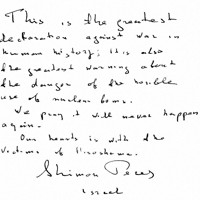 This is the greatest
declaration against war in
human history; it is also
the greatest warning about
the danger of the horrible
use of nuclear bombs.
We pray it will never happen
again.
Our hearts is with the
victims of Hiroshima.
Shimon Peres
Israel